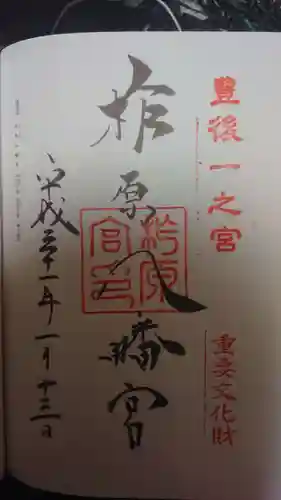 豊後一之宮
重要文化財
柞原八幡宮
柞原
宮印
平成三十一年一月十三日